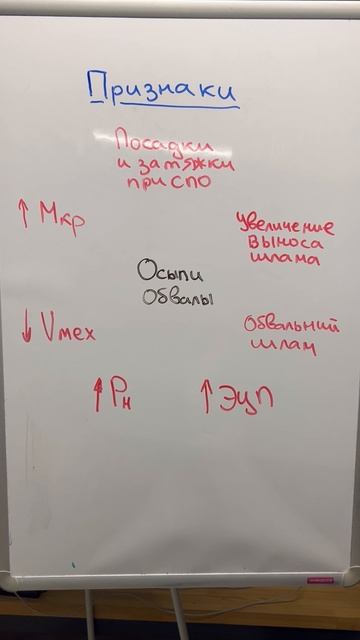 Признаки
Посадки
и затяжки
при СПО
↑ Мкр
Увеличение
выноса
шлама
Осыпи
обвалы
↓ Vмех
Обвальний
шлам
↑ Рн
↑ ЭЦП